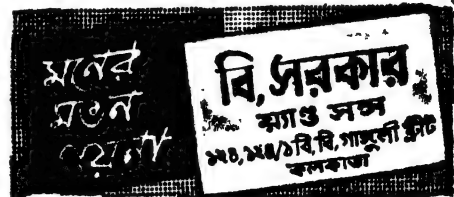 মনের
মতন
গয়না
বি, সরকার
য়্যাণ্ড সন্স
১২৪, ১২৪/১ বি, বি, গাঙ্গুলী ষ্ট্রীট
কলকাতা